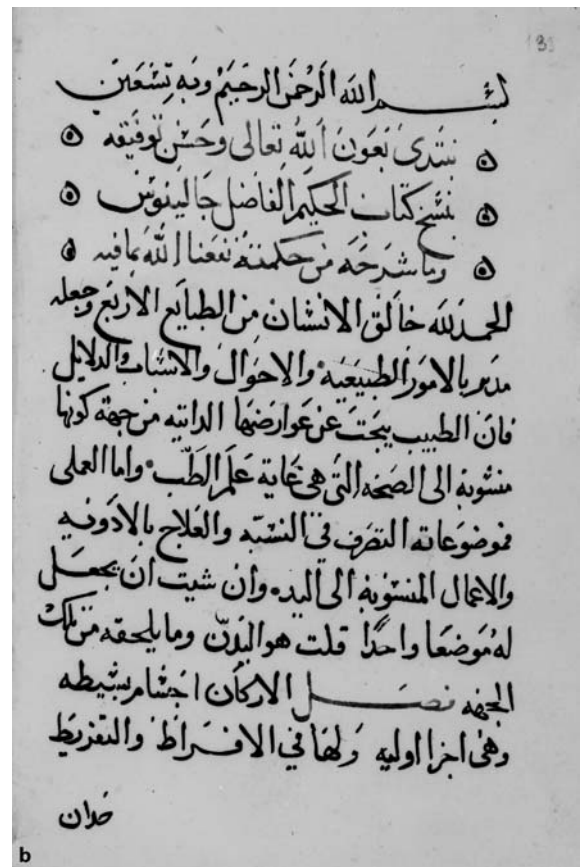 13
بسم الله الرحمن الرحيم وبه نستعين
نبتدى بعون الله تعالى وحسن توفيقه
بنسخ كتاب الحكيم الفاضل جالينوس
وما شرحه من حكمته نفعنا الله بما فيه
الحمد لله خالق الانسان من الطبايع الاربع وجعله
مدبر بالامور الطبيعيه والاحوال والاسباب والدلايل
فان الطبيب يبحث عن عوارضها الذاتيه من جهة كونها
منسوبة الى الصحه التى هى غاية علم الطب واما العملى
فموضوعاته التصرف في النسبه والعلاج بالادويه
والاعمال المنسوبة الى اليد وان شيت ان يجعل
له موضعا واحدا قلت هو البدن وما يلحقه من تلك
الجهه فصل الاركان اجسام بسيطه
وهى اجزا اوليه ولها في الافراط والتفريط
حدان
b